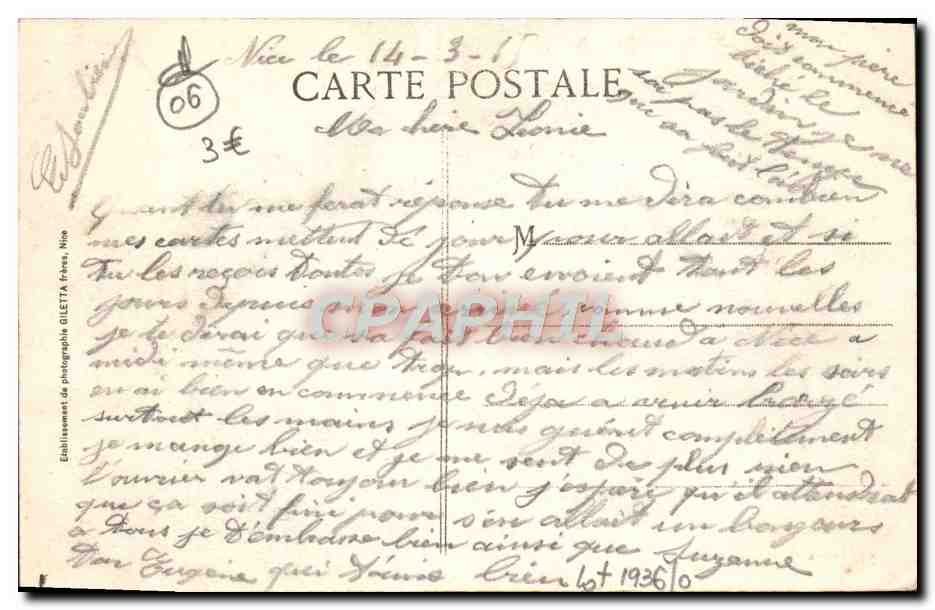 Nice le 14-3-15
CARTE POSTALE
06
3€
Ma chère Léonie
mon père
doit commencé
bêché le
jardin je me
pas le temps
Quant tu me ferat réponse tu me dira combien
mes cartes mettent de jour pour allait et si
M
tu les reçois toutes je t'en envoient tout les
jours depuis comme nouvelles
je te dirai que sa fait bien chaud a Nice a
midi même que trop, mais les matins les soirs
on ai bien en commence déja a avoir bronzé
surtout les mains je suis guérit complètement
je mange bien et je me sent de plus rien
l'ouvrier vat toujour bien j'espère qu'il attendrat
que ça soit fini pour s'en allait un bonjours
a tous je t'embrasse bien ainsi que Suzanne
Ton Eugène qui t'aime bien
Lot 1936/0
Etablissement de photographie GILETTA frères, Nice
CPAPHIL